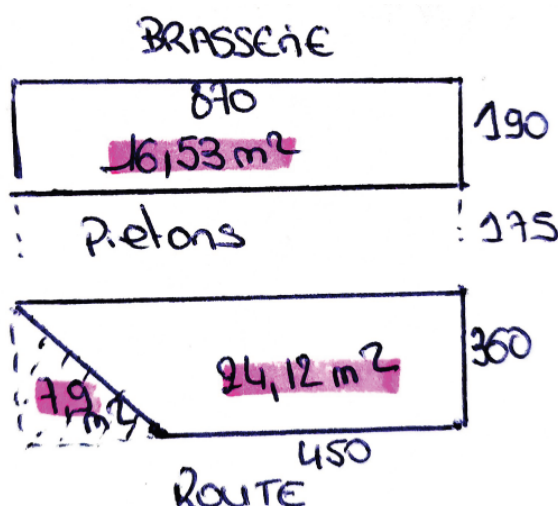 BRASSERIE
870
16,53 m²
190
Pietons
175
360
24,12 m²
7,9
m²
450
ROUTE